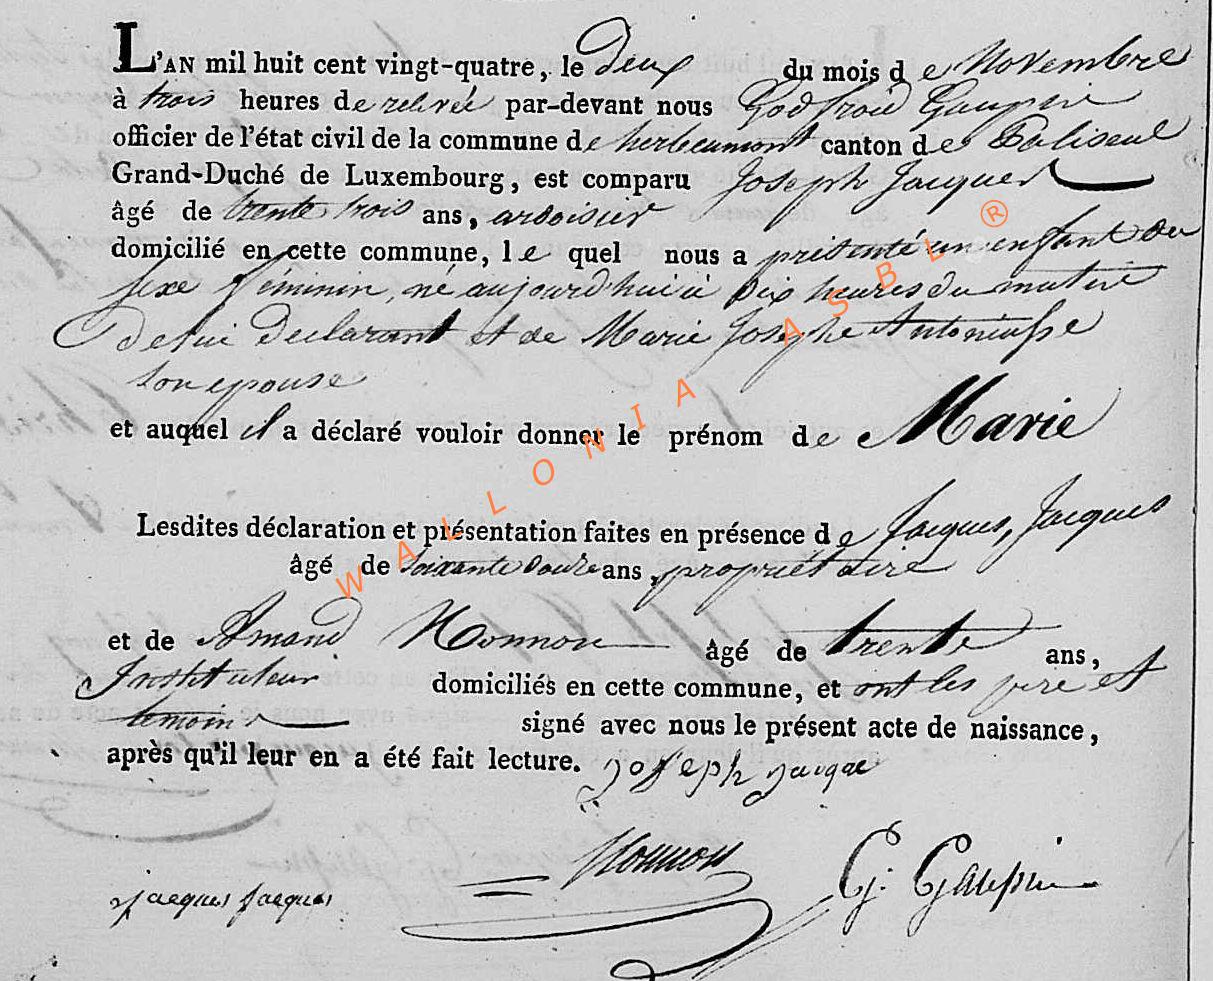 L'AN mil huit cent vingt-quatre, le deux du mois de Novembre
à trois heures de relevée par-devant nous Godfroid Gaupin
officier de l'état civil de la commune de herbeumont canton de Paliseul
Grand-Duché de Luxembourg, est comparu Joseph Jacques
âgé de trente trois ans, ardoisier
domicilié en cette commune, le quel nous a présenté un enfant du
sexe féminin, né aujourd'hui à dix heures du matin
de lui déclarant et de Marie Josephe Antoniusse
son epouse
et auquel il a déclaré vouloir donner le prénom de Marie
Lesdites déclaration et présentation faites en présence de Jacques, Jacques
âgé de soixante douze ans, propriétaire
et de Amand Monnon âgé de trente ans,
Instituteur domiciliés en cette commune, et ont les père et
temoins signé avec nous le présent acte de naissance,
après qu'il leur en a été fait lecture. Joseph Jacque
Monnon
jacques jacques
G. Gaupin
WALLONIA ASBL ®